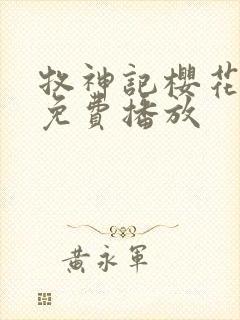 牧神記櫻花
免費播放
黃永軍